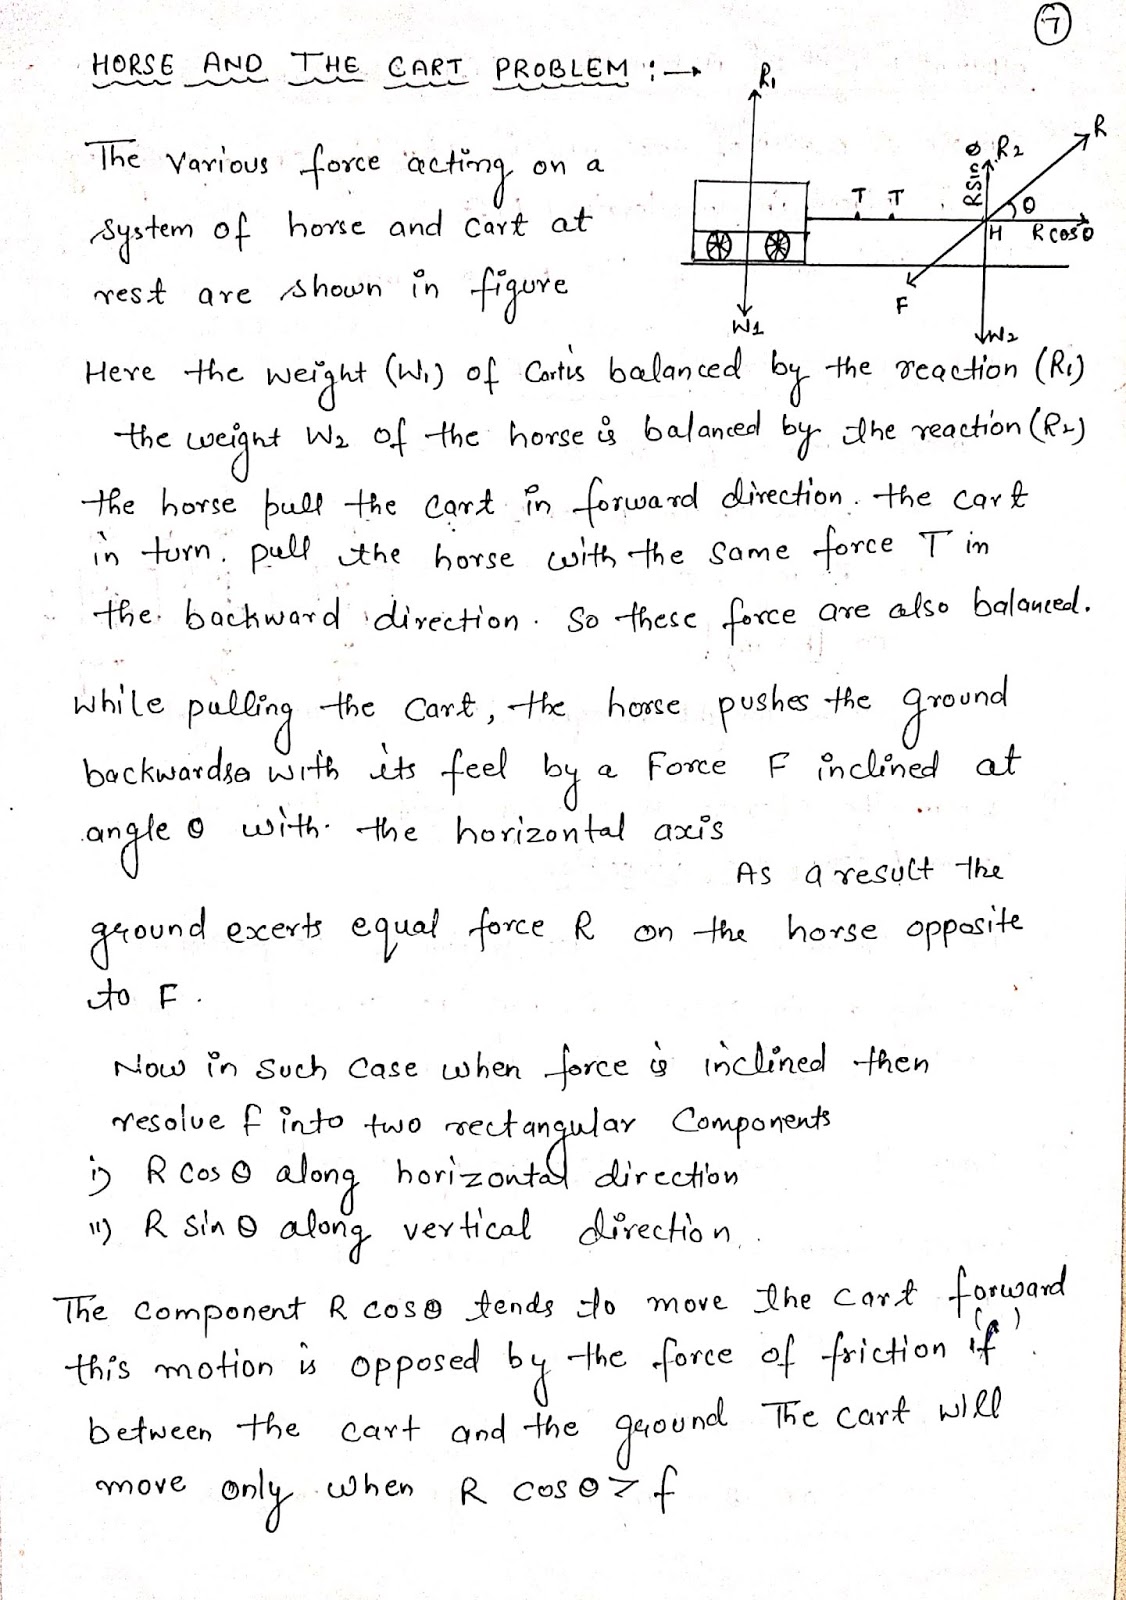 7
HORSE AND THE CART PROBLEM :→
The various force acting on a
system of horse and cart at
rest are shown in figure
R1
R Sin θ R2
R
T T
θ
H R cos θ
F
W1
W2
Here the weight (W1) of Cart is balanced by the reaction (R1)
the weight W2 of the horse is balanced by the reaction (R2)
the horse pull the cart in forward direction. the cart
in turn. pull the horse with the same force T in
the backward direction. So these force are also balanced.
while pulling the cart, the horse pushes the ground
backwards with its feel by a Force F inclined at
angle θ with the horizontal axis
As a result the
ground exerts equal force R on the horse opposite
to F.
Now in such case when force is inclined then
resolve f into two rectangular Components
i) R cos θ along horizontal direction
ii) R sin θ along vertical direction.
The component R cos θ tends to move the cart forward
this motion is opposed by the force of friction if
between the cart and the ground The cart will
move only when R cos θ > f